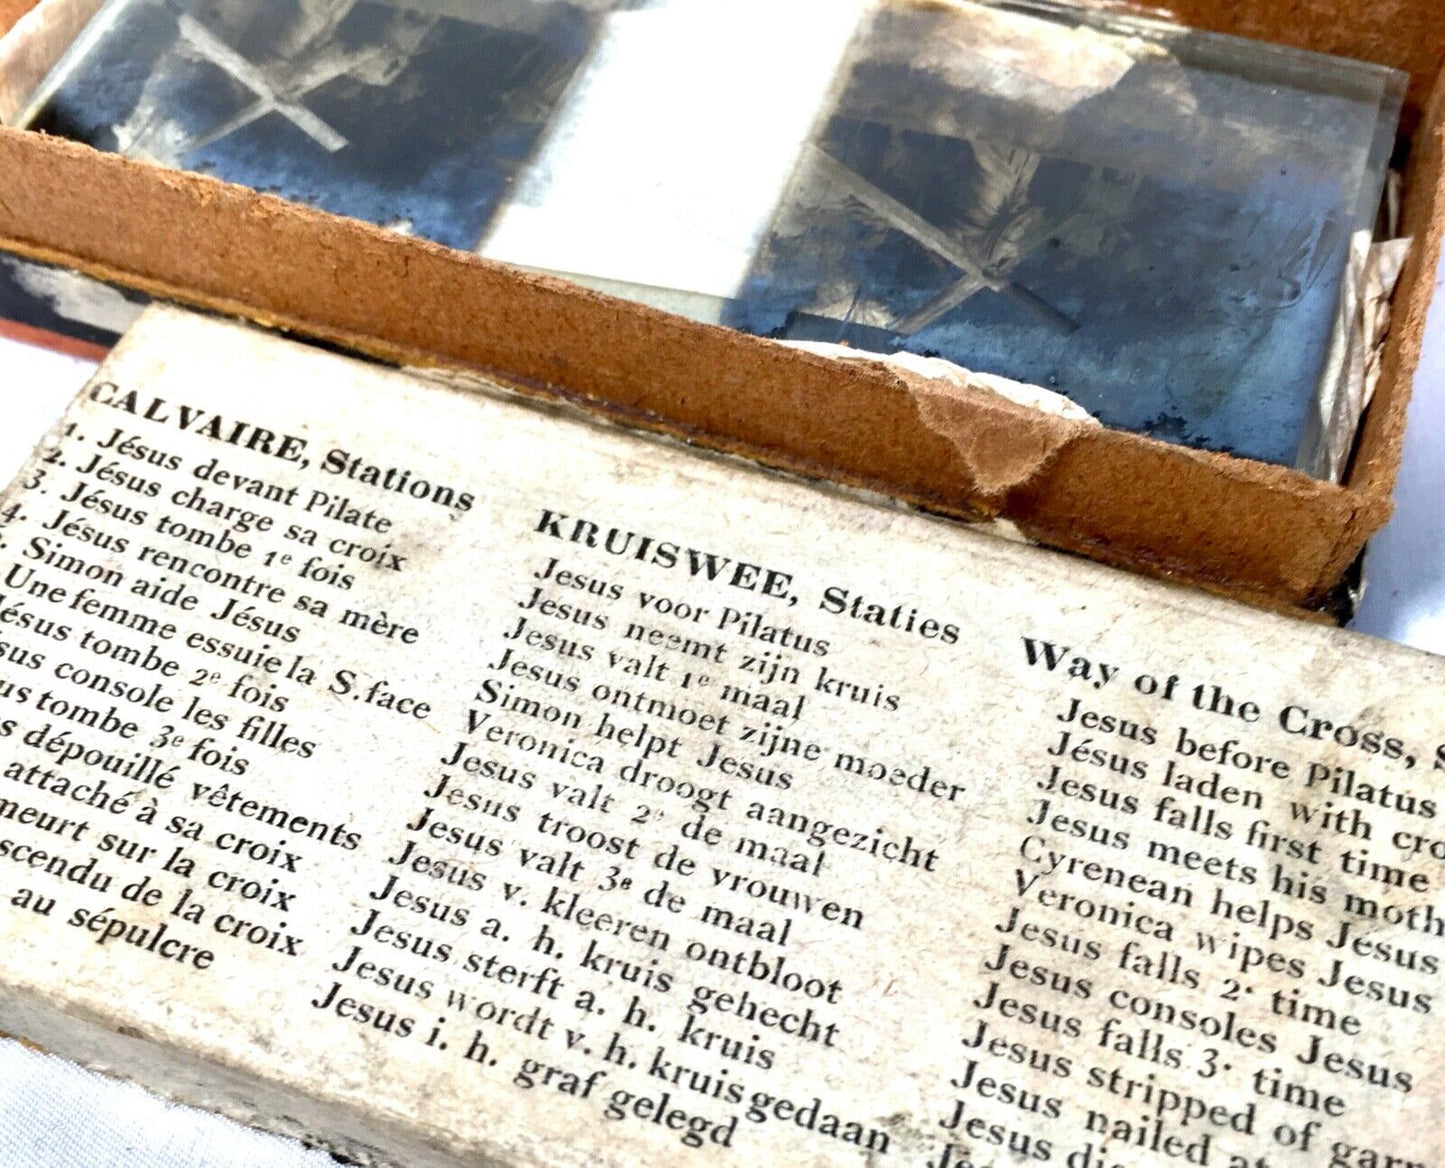 CALVAIRE, Stations
1. Jésus devant Pilate
2. Jésus charge sa croix
3. Jésus tombe 1e fois
4. Jésus rencontre sa mère
Simon aide Jésus
Une femme essuie la S. face
Jésus tombe 2e fois
console les filles
tombe 3e fois
dépouillé vêtements
attaché à sa croix
meurt sur la croix
de la croix
au sépulcre
KRUISWEE, Staties
Jesus voor Pilatus
Jesus neemt zijn kruis
Jesus valt 1e maal
Jesus ontmoet zijne moeder
Simon helpt Jesus
Veronica droogt aangezicht
Jesus valt 2e de maal
Jesus troost de vrouwen
Jesus valt 3e de maal
Jesus v. kleeren ontbloot
Jesus a. h. kruis gehecht
Jesus sterft a. h. kruis
Jesus wordt v. h. kruis gedaan
Jesus i. h. graf gelegd
Way of the Cross,
Jesus before Pilatus
Jésus laden with
Jesus falls first time
Jesus meets his
Cyrenean helps Jésus
Veronica wipes Jesus
Jesus falls 2· time
Jesus consoles Jesus
Jesus falls 3· time
Jesus stripped of
Jesus nailed
Jesus